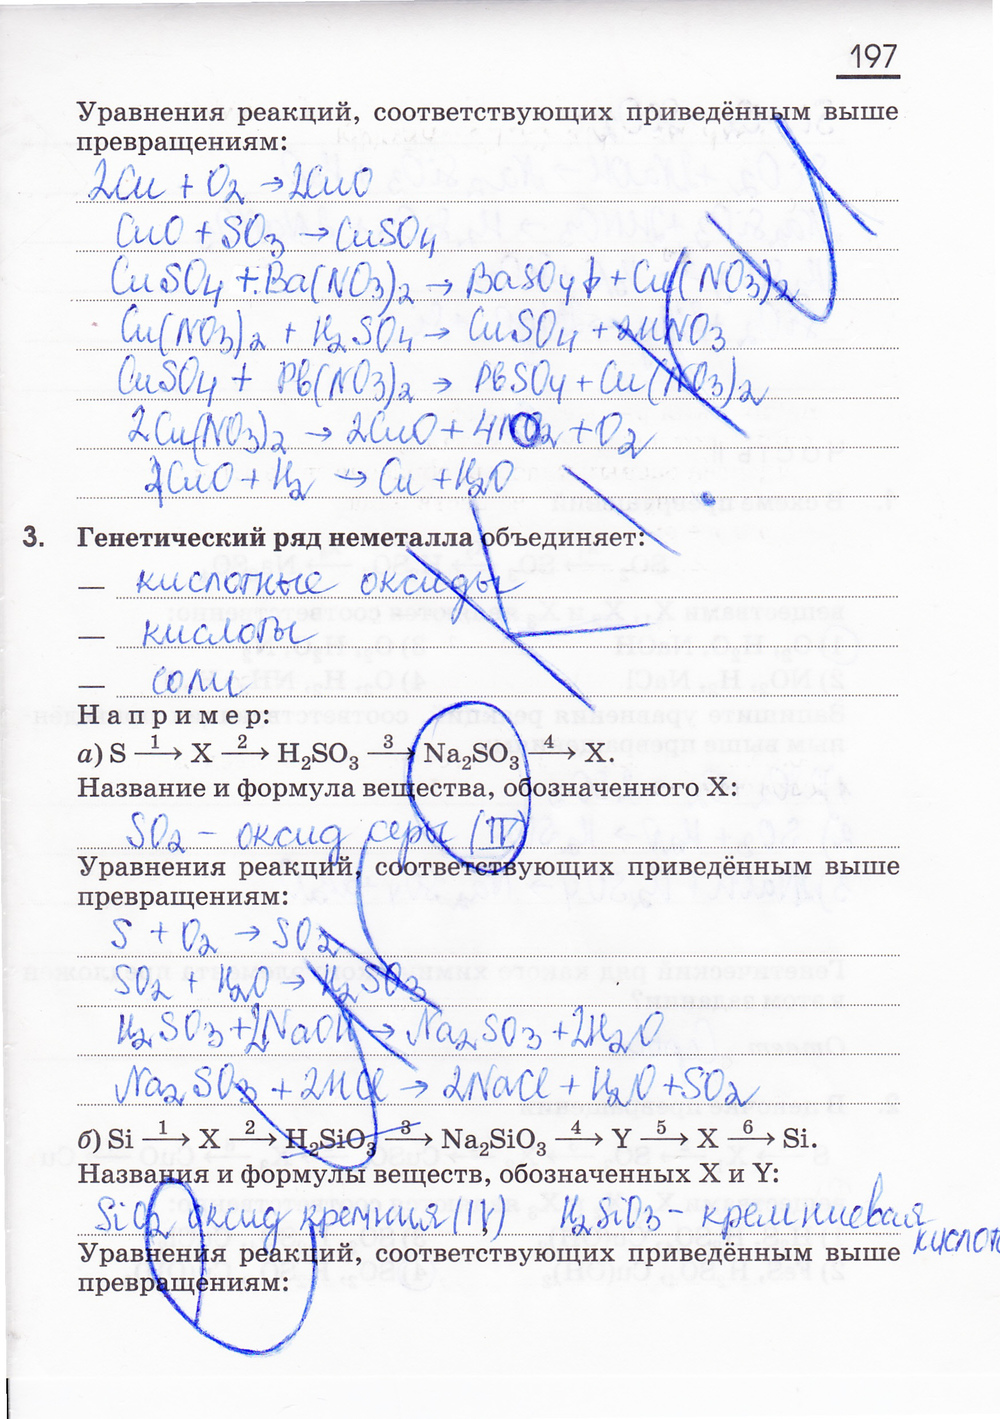 197
Уравнения реакций, соответствующих приведённым выше
превращениям:
2Cu + O₂ → 2CuO
CuO + SO₃ → CuSO₄
CuSO₄ + Ba(NO₃)₂ → BaSO₄↓ + Cu(NO₃)₂
Cu(NO₃)₂ + H₂SO₄ → CuSO₄ + 2HNO₃
CuSO₄ + Pb(NO₃)₂ → PbSO₄ + Cu(NO₃)₂
2Cu(NO₃)₂ → 2CuO + 4NO₂ + O₂
CuO + H₂ → Cu + H₂O
3. Генетический ряд неметалла объединяет:
— кислотные оксиды
— кислоты
— соли
Например:
а) S —1→ X —2→ H₂SO₃ —3→ Na₂SO₃ —4→ X.
Название и формула вещества, обозначенного X:
SO₂ - оксид серы (IV)
Уравнения реакций, соответствующих приведённым выше
превращениям:
S + O₂ → SO₂
SO₂ + H₂O → H₂SO₃
H₂SO₃ + 2NaOH → Na₂SO₃ + 2H₂O
Na₂SO₃ + 2HCl → 2NaCl + H₂O + SO₂
б) Si —1→ X —2→ H₂SiO₃ —3→ Na₂SiO₃ —4→ Y —5→ X —6→ Si.
Названия и формулы веществ, обозначенных X и Y:
SiO₂ оксид кремния (IV) H₂SiO₃ - кремниевая
кислота
Уравнения реакций, соответствующих приведённым выше
превращениям: